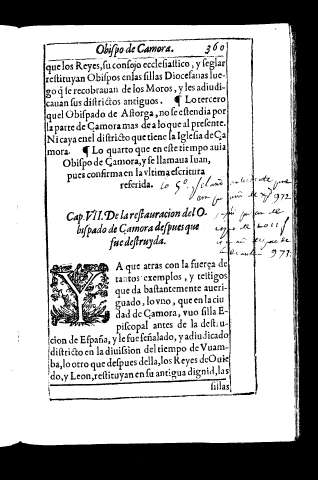 Obispo de Çamora. 360
que los Reyes, su consejo ecclesiastico, y seglar
restituyan Obispos en las sillas Diocesanas lue-
go q̃ se recobrauan de los Moros, y les adiudi-
cauan sus districtos antiguos. ¶ Lo tercero
que el Obispado de Astorga, no se estendia por
la parte de Çamora mas de a lo que al presente.
Ni caya en el districto que tiene la Iglesia de Ça
mora. ¶ Lo quarto que en este tiempo auia
Obispo de Çamora, y se llamaua Iuan,
pues confirma en la vltima escritura
referida. Lo 5º. 
Cap. VII. De la restauracion del O-
bispado de Çamora despues que
fue destruyda.
YA que atras con la fuerça de
tantos exemplos, y testigos
que da bastantemente aueri-
guado, lo vno, que en la ciu
dad de Çamora, vuo silla E-
piscopal antes de la destru-
cion de España, y le fue señalado, y adiudicado
districto en la diuission del tiempo de Vuam-
ba, lo otro que despues della, los Reyes de Ouie
do, y Leon, restituyan en su antigua dignidad, las
sillas